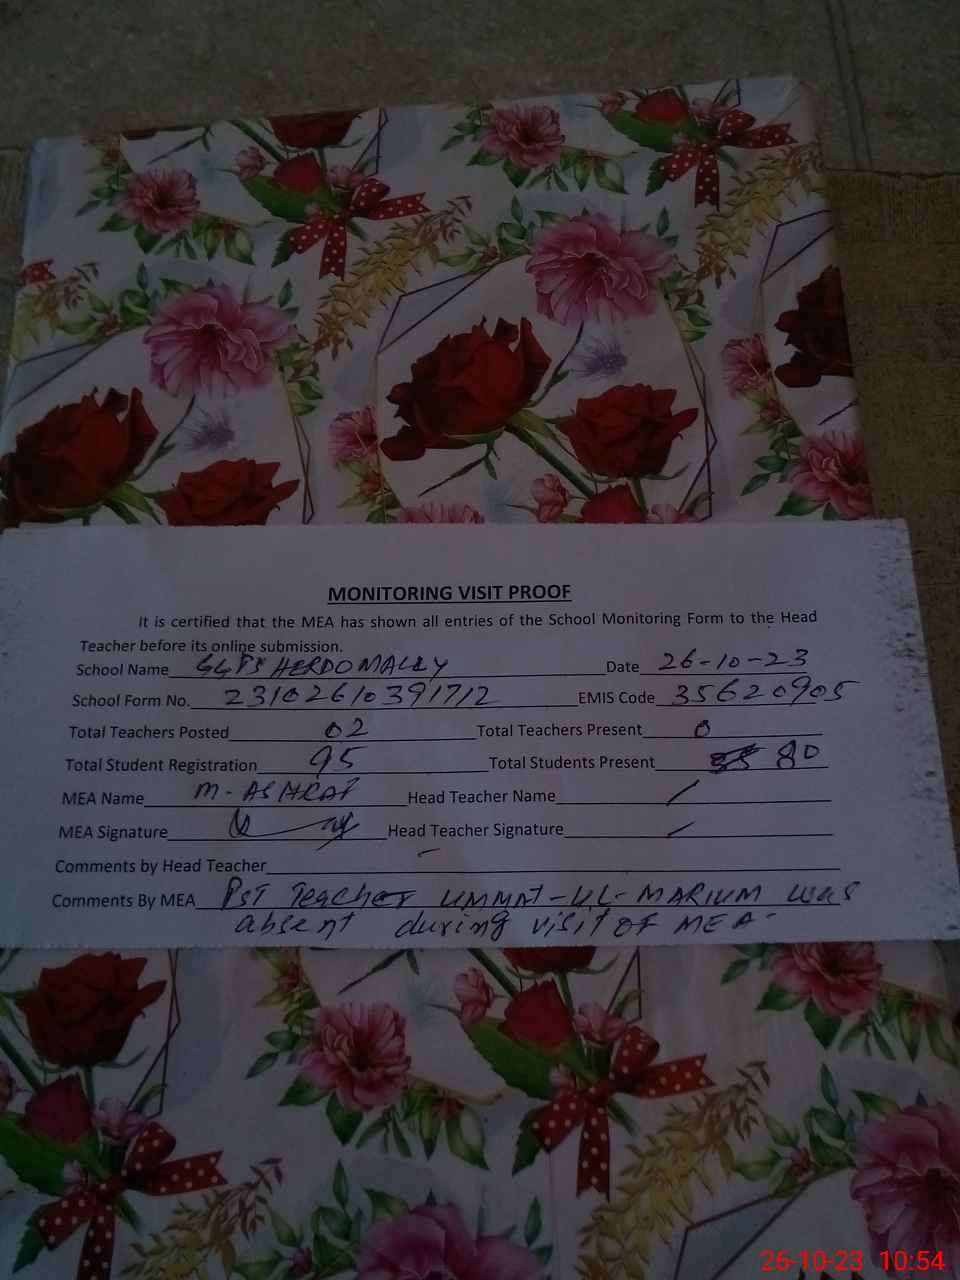 MONITORING VISIT PROOF
It is certified that the MEA has shown all entries of the School Monitoring Form to the Head
Teacher before its online submission.
School Name GGPS HERDOMALLY Date 26-10-23
School Form No. 23102610391712 EMIS Code 35620905
Total Teachers Posted 02 Total Teachers Present 0
Total Student Registration 95 Total Students Present 80
MEA Name M. ASHRAF Head Teacher Name /
MEA Signature Head Teacher Signature /
Comments by Head Teacher
Comments By MEA PST Teacher UMMAT-UL-MARIUM was
absent during visit OF MEA-
26-10-23 10:54